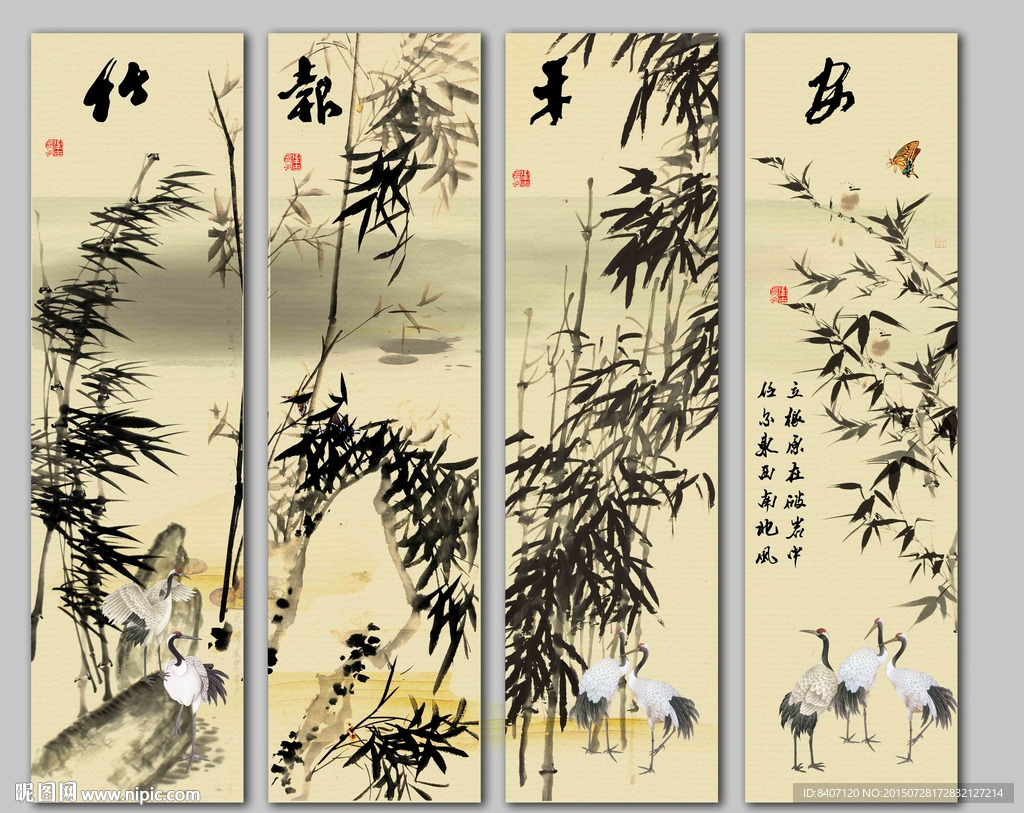 竹
報
平
安
立根原在破岩中
任尔東西南北风
昵图网 www.nipic.com
ID:8407120 NO:20150728172832127214